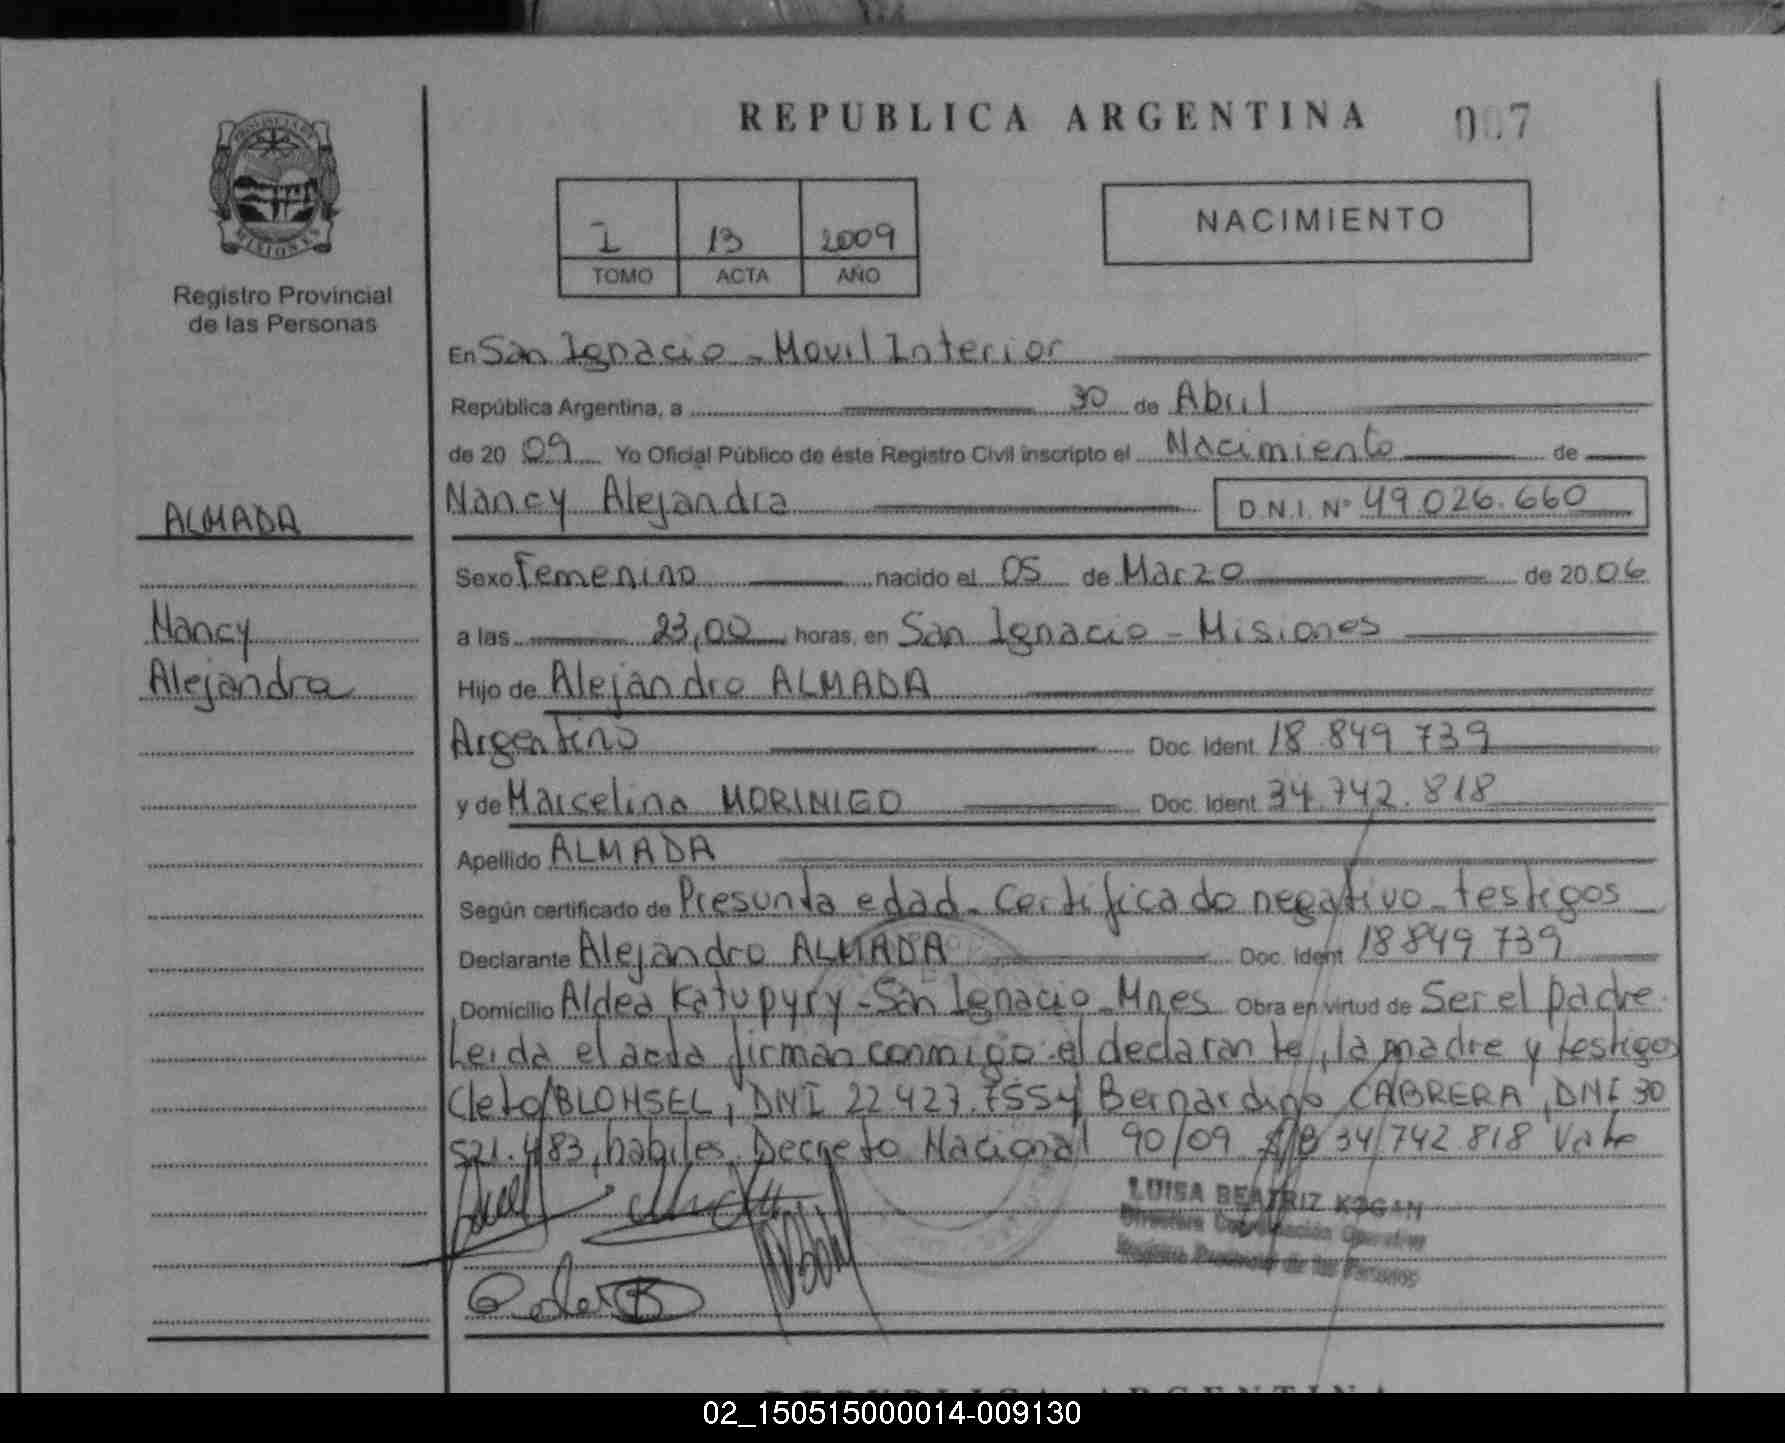 REPUBLICA ARGENTINA
007
PROVINCIA DE
MISIONES
Registro Provincial
de las Personas
I 13 2009
TOMO ACTA AÑO
NACIMIENTO
En San Ignacio - Movil Interior
República Argentina, a 30 de Abril
de 20 09 Yo Oficial Público de éste Registro Civil inscripto el Nacimiento de
Nancy Alejandra D.N.I. Nº 49.026.660
ALMADA
Sexo Femenino nacido el 05 de Marzo de 20 06
Nancy
a las 23,00 horas, en San Ignacio - Misiones
Alejandra
Hijo de Alejandro ALMADA
Argentino Doc. Ident. 18.849.739
y de Marcelina MORINIGO Doc. Ident. 34.742.818
Apellido ALMADA
Según certificado de Presunta edad - Certificado negativo - testigos
Declarante Alejandro ALMADA Doc. Ident. 18 849 739
Domicilio Aldea Katupyry - San Ignacio - Mnes Obra en virtud de Ser el padre.
Leida el acta firman conmigo el declarante, la madre y testigos
Cleto BLOHSEL, DNI 22.427.755 y Bernardino CABRERA, DNI 30
521.483, habiles. Decreto Nacional 90/09 S/B 34/742.818 Vale
LUISA BEATRIZ KOGAN
Directora Coordinación Operativa
Registro Provincial de las Personas
REPUBLICA ARGENTINA
02_150515000014-009130